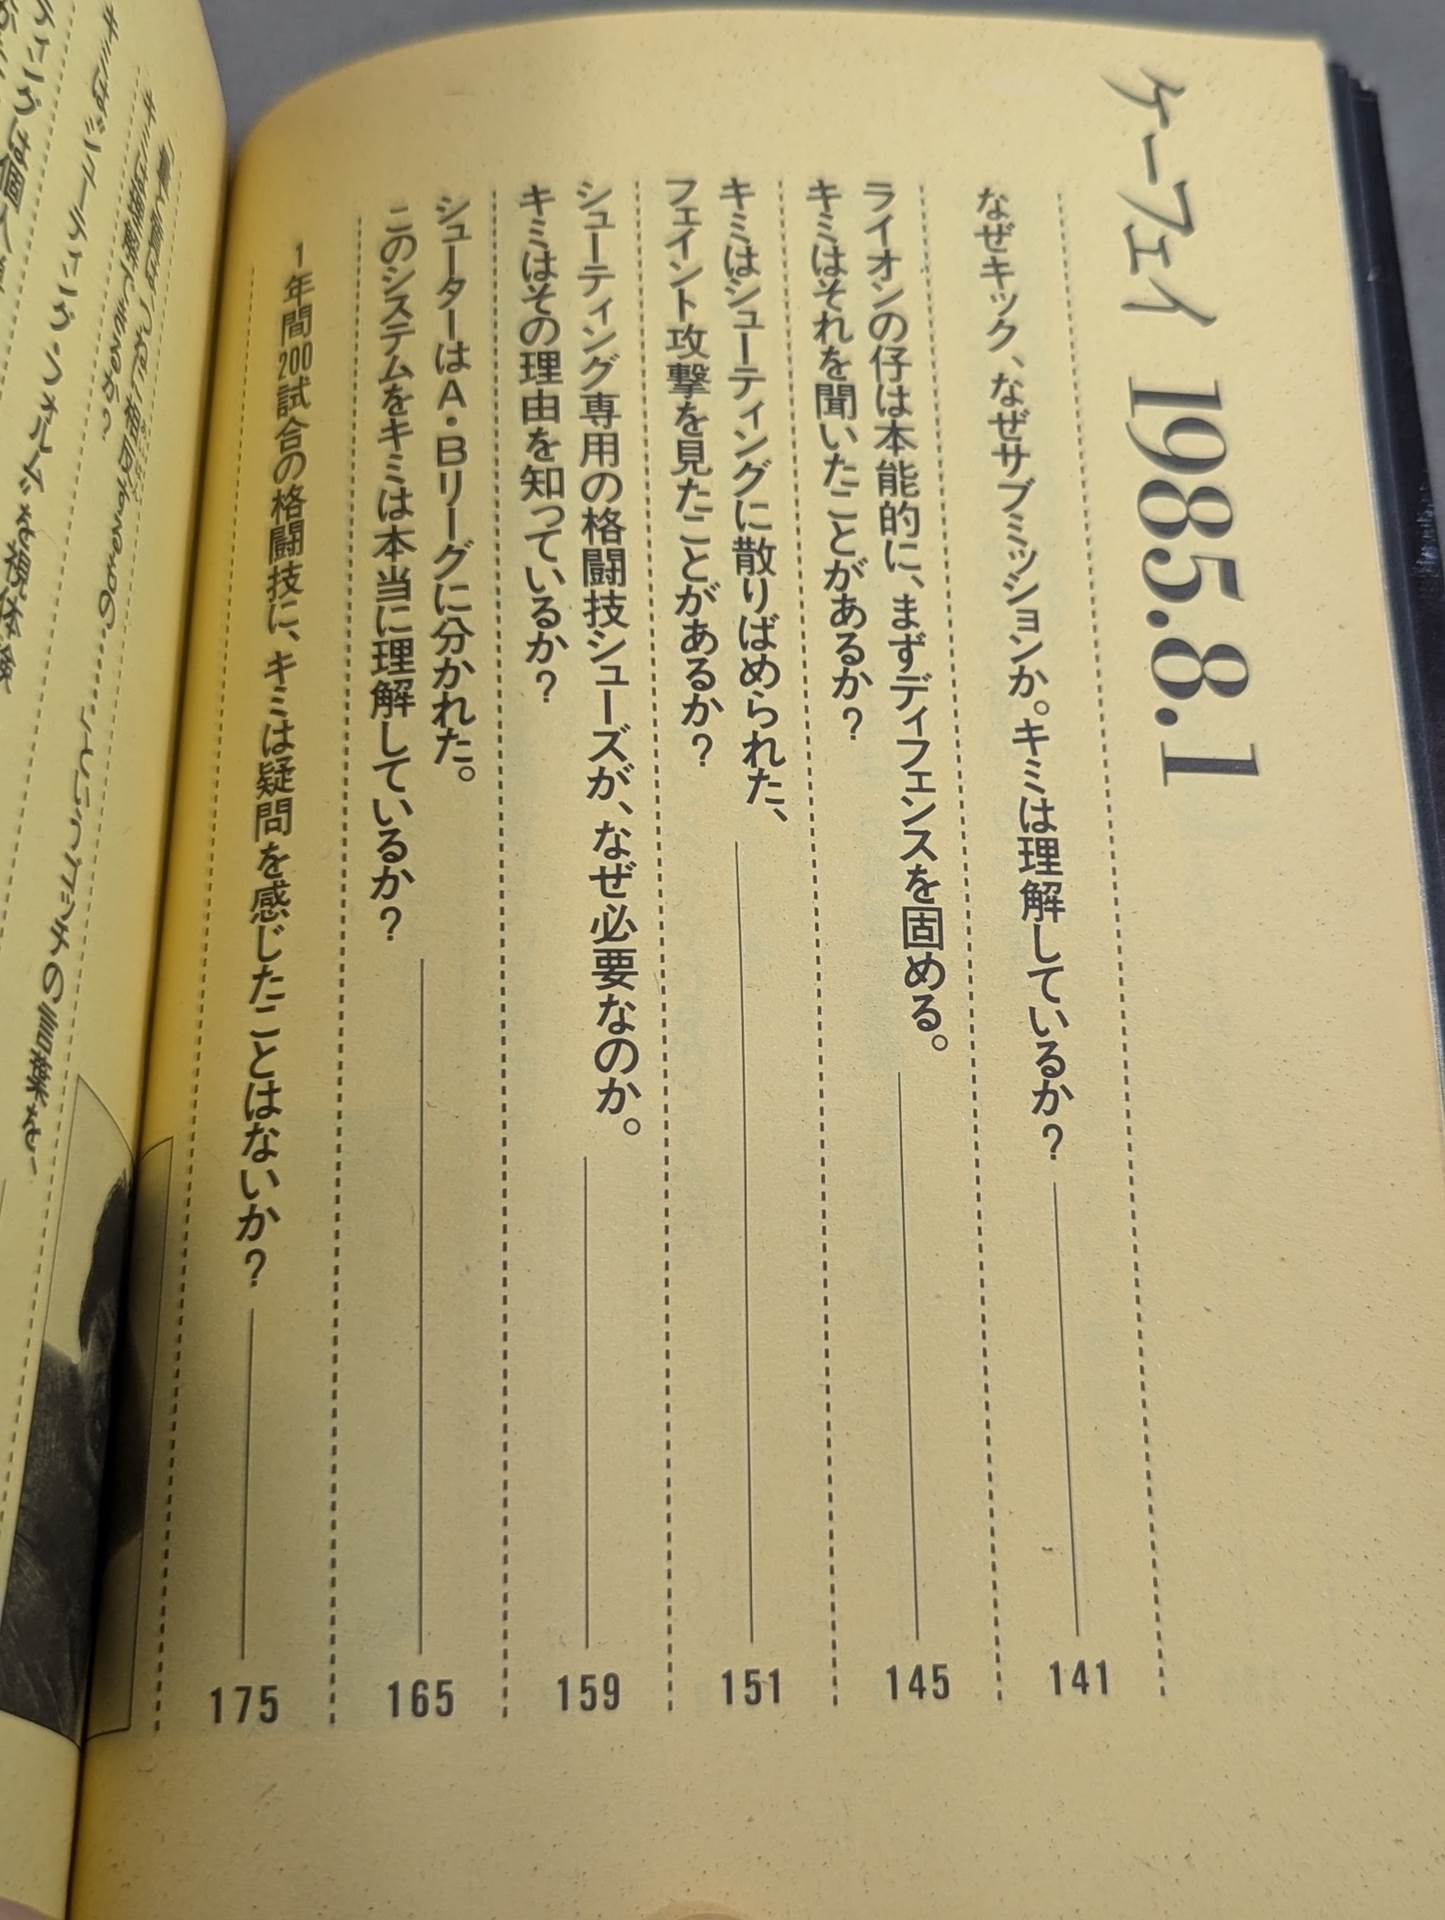 ケーフェイ 1985.8.1
なぜキック、なぜサブミッションか。キミは理解しているか？ 141
ライオンの仔は本能的に、まずディフェンスを固める。
キミはそれを聞いたことがあるか？ 145
キミはシューティングに散りばめられた、
フェイント攻撃を見たことがあるか？ 151
シューティング専用の格闘技シューズが、なぜ必要なのか。
キミはその理由を知っているか？ 159
シューターはA・Bリーグに分かれた。
このシステムをキミは本当に理解しているか？ 165
1年間200試合の格闘技に、キミは疑問を感じたことはないか？ 175
キミは理解できるか？
キミはシューティング・フォルムを